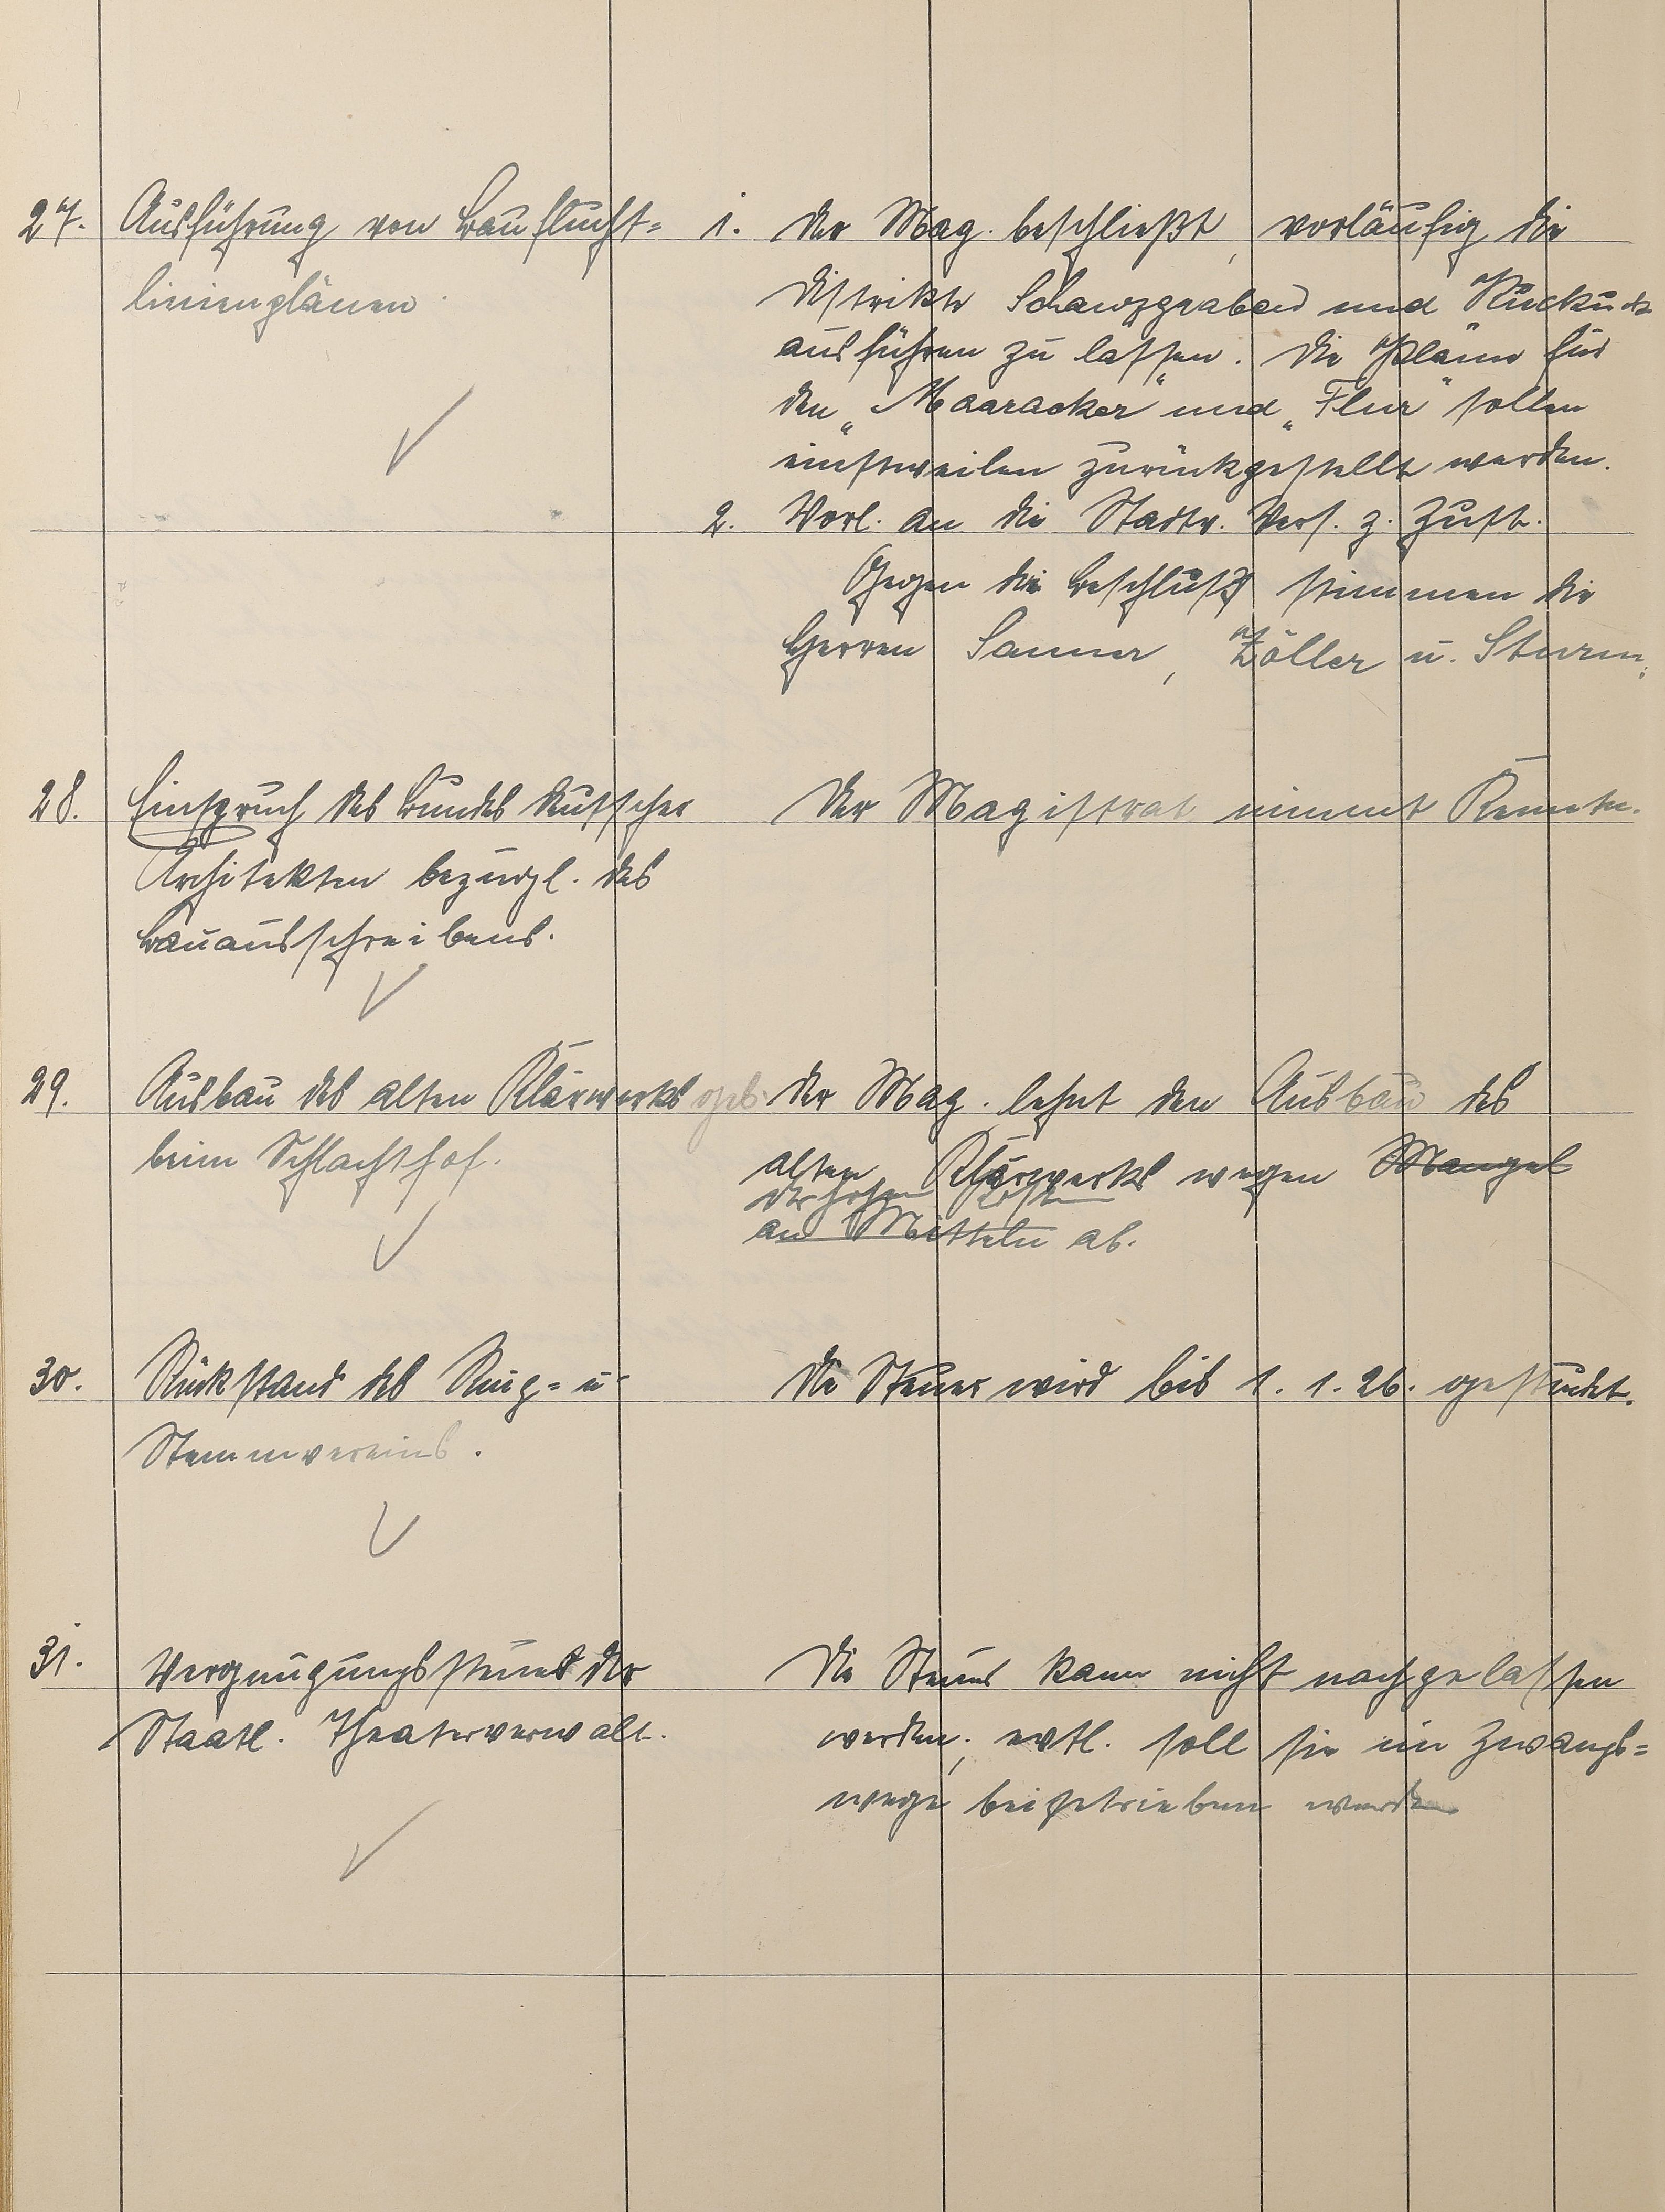 27. Ausführung von Bauflucht=
linienplänen.
1. Der Mag. beschließt, vorläufig die
Distrikte Schanzgraben und Kuckuck
ausführen zu lassen. Die Pläne für
den „Maaracker" und „Flur" sollen
einstweilen zurückgestellt werden.
2. Vorl. an die Stadtv. Vers. z. Zust.
Gegen die Beschluß stimmen die
Herren Sauner, Zöller u. Sturm.
28. Einspruch des Bundes deutscher
Architekten bezügl. des
Bauausschreibens.
Der Magistrat nimmt Kenntn.
29. Ausbau des alten Klärwerks
beim Schlachthof.
Der Mag. lehnt den Ausbau des
alten Klärwerks wegen Mangel
der hohen Kosten
an Mitteln ab.
30. Rückstand des Ring= u.
Stemmvereins.
Die Steuer wird bis 1. 1. 26. gestundet.
31. Vergnügungssteuer der
Staatl. Theaterverwalt.
Die Steuer kann nicht nachgelassen
werden; evtl. soll sie im Zwangs=
wege beigetrieben werden.